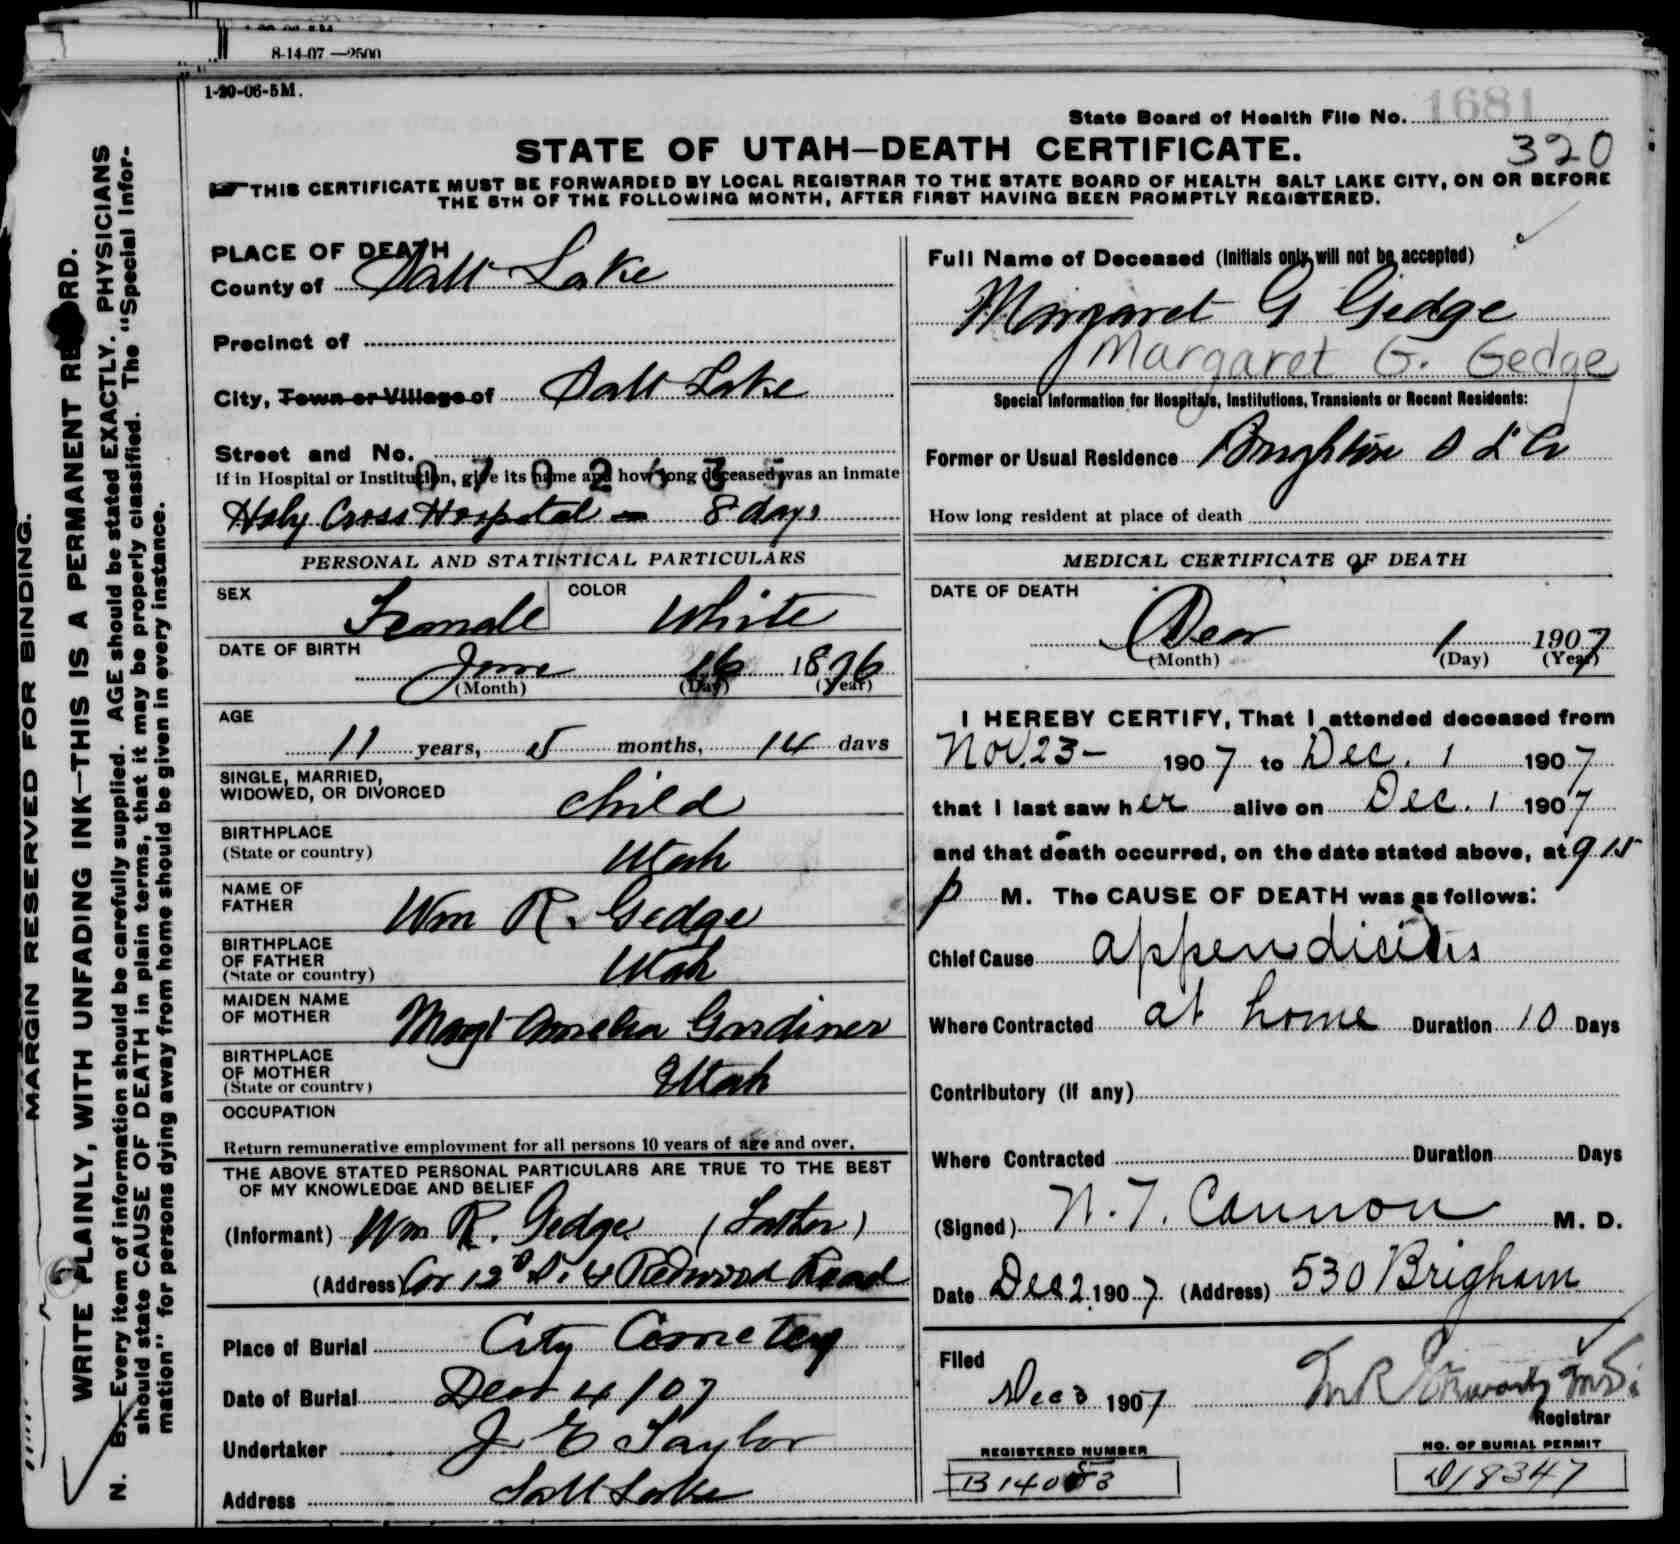 8-14-07 —2500
1-20-06-5M.
State Board of Health File No. 1681
320
STATE OF UTAH—DEATH CERTIFICATE.
THIS CERTIFICATE MUST BE FORWARDED BY LOCAL REGISTRAR TO THE STATE BOARD OF HEALTH SALT LAKE CITY, ON OR BEFORE
THE 5TH OF THE FOLLOWING MONTH, AFTER FIRST HAVING BEEN PROMPTLY REGISTERED.
MARGIN RESERVED FOR BINDING.
WRITE PLAINLY, WITH UNFADING INK—THIS IS A PERMANENT RECORD.
N. B.—Every item of information should be carefully supplied. AGE should be stated EXACTLY. PHYSICIANS
should state CAUSE OF DEATH in plain terms, that it may be properly classified. The "Special Infor-
mation" for persons dying away from home should be given in every instance.
PLACE OF DEATH
County of Salt Lake
Precinct of
City, Town or Village of Salt Lake
Street and No.
If in Hospital or Institution, give its name and how long deceased was an inmate
Holy Cross Hospital — 8 days
PERSONAL AND STATISTICAL PARTICULARS
SEX Female COLOR White
DATE OF BIRTH
June 16 1896
(Month) (Day) (Year)
AGE
11 years, 5 months, 14 days
SINGLE, MARRIED,
WIDOWED, OR DIVORCED child
BIRTHPLACE
(State or country) Utah
NAME OF
FATHER Wm R. Gedge
BIRTHPLACE
OF FATHER
(State or country) Utah
MAIDEN NAME
OF MOTHER Margt Amelia Gardiner
BIRTHPLACE
OF MOTHER
(State or country) Utah
OCCUPATION
Return remunerative employment for all persons 10 years of age and over.
THE ABOVE STATED PERSONAL PARTICULARS ARE TRUE TO THE BEST
OF MY KNOWLEDGE AND BELIEF
(Informant) Wm R. Gedge (Father)
(Address) Cor 12th S. & Redwood Road
Place of Burial City Cemetery
Date of Burial Dec 4/07
Undertaker J E Taylor
Address Salt Lake
Full Name of Deceased (Initials only will not be accepted)
Margaret G Gedge
Margaret G. Gedge
Special Information for Hospitals, Institutions, Transients or Recent Residents:
Former or Usual Residence Brighton S L Co
How long resident at place of death
MEDICAL CERTIFICATE OF DEATH
DATE OF DEATH
Dec 1 1907
(Month) (Day) (Year)
I HEREBY CERTIFY, That I attended deceased from
Nov. 23- 1907 to Dec. 1 1907
that I last saw her alive on Dec. 1 1907
and that death occurred, on the date stated above, at 9 15
p M. The CAUSE OF DEATH was as follows:
Chief Cause appendicitis
Where Contracted at home Duration 10 Days
Contributory (if any)
Where Contracted Duration Days
(Signed) W. T. Cannon M. D.
Date Dec 2 1907 (Address) 530 Brigham
Filed
Dec 3 1907
Registrar
REGISTERED NUMBER
NO. OF BURIAL PERMIT
D18347